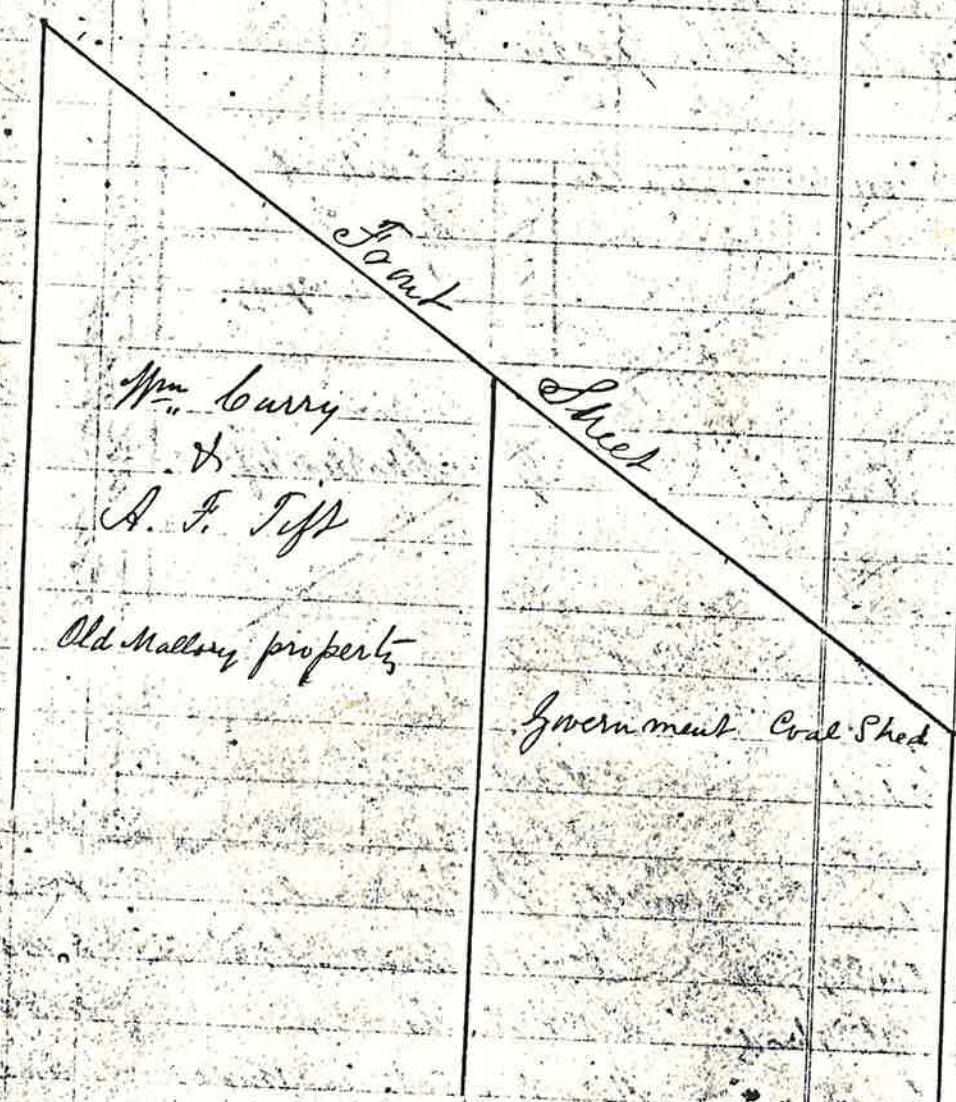 Front Street
Wm Curry
&
A. F. Tift
Old Mallory property
Government Coal Shed